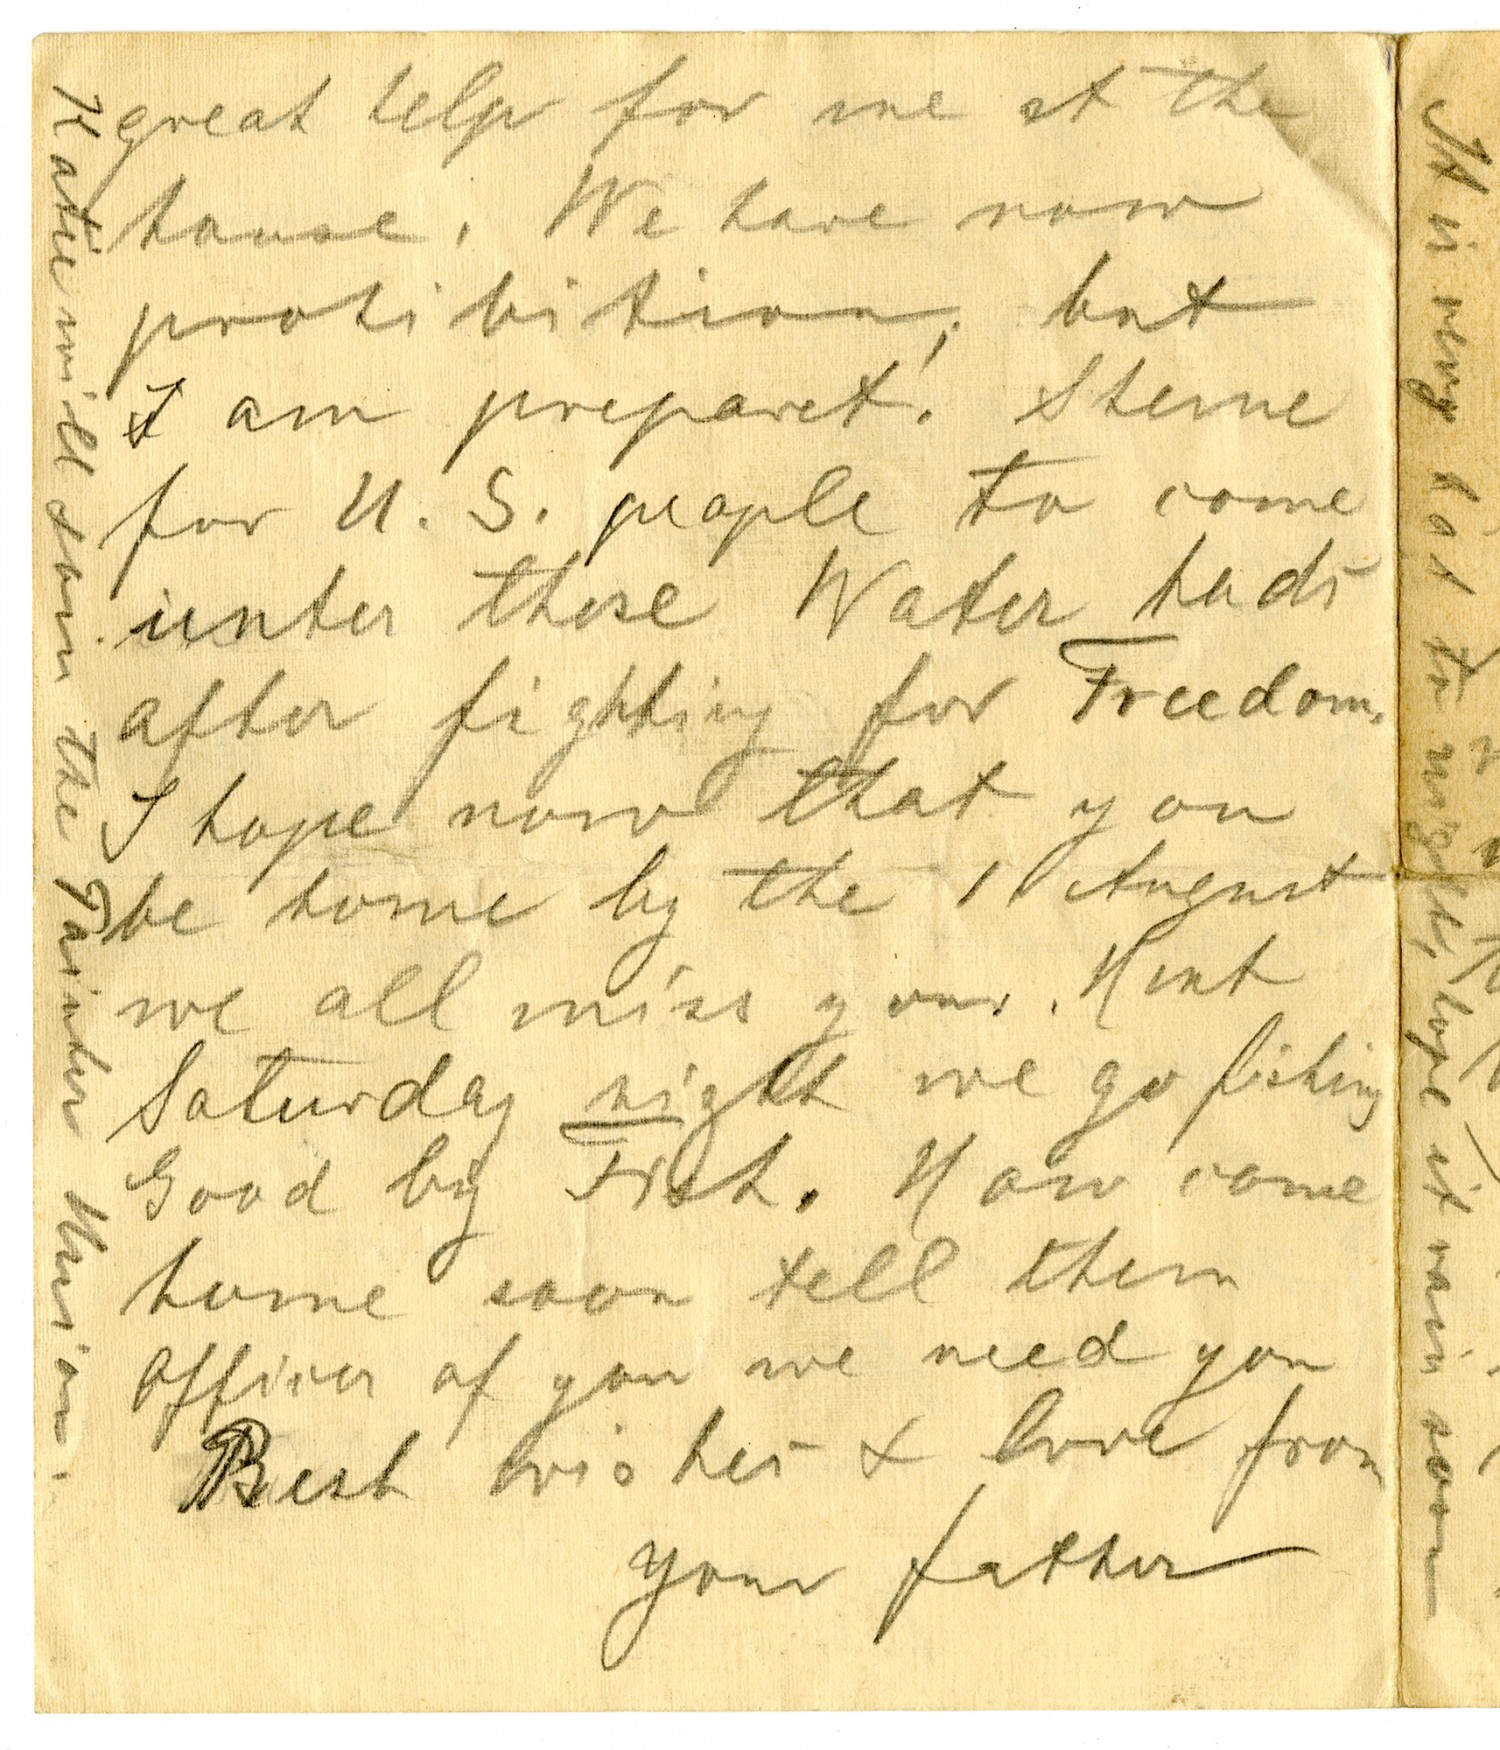 great help for me at the
house. We have now
prohibition, but
I am preparet! Sheme
for U. S. people to come
unter those Water heds
after fighting for Freedom.
I hope now that you
be home by the 1 August
we all miss your. Next
Saturday night we go fishing
Good by Fish. Now come
home soon tell them
Officer of you we need you
Best wishes & love from
your father
Katie will soon the Union.
It is very hot to night, hope it rain soon